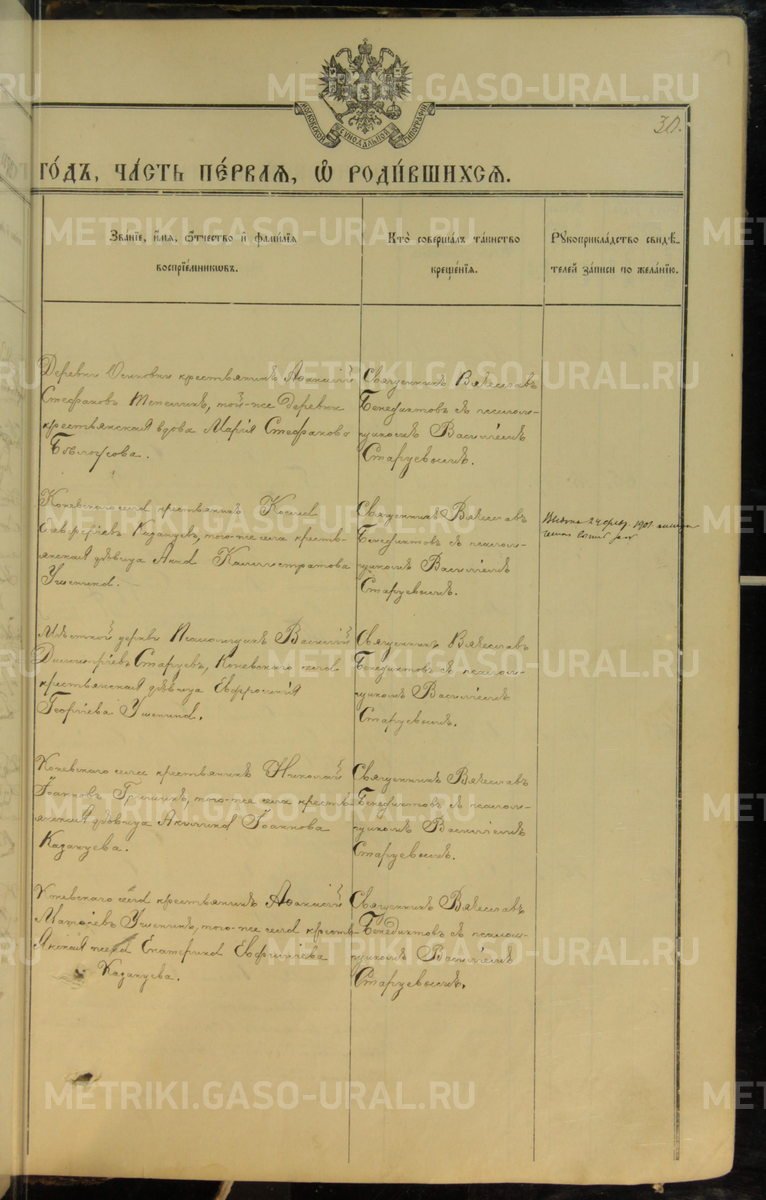 МОСКОВСКОЙ СѴНОДАЛЬНОЙ ТИПОГРАФІИ
30.
го́дъ, ча́сть пе́рвая, ѽ роди́вшихся.
Зва́ніе, и҆́мя, ѻ҆́тчество и҆ фами́лія
воспріе́мникѡвъ.
Кто̀ соверша́лъ та́инство
креще́нія.
Рꙋкоприкла́дство свидѣ́-
телей за́писи по жела́нію.
Деревни крестьянинъ Аѳанасій
Стефановъ той-же деревни
крестьянская вдова Марія Стефанова
Бѣлоусова.
Священникъ Вячеславъ
Бенедиктовъ съ псалом-
щикомъ Василіемъ
Старцевымъ.
Коневскаго села крестьянинъ
Казанцевъ, того-же села кресть-
янская дѣвица Анна Каллистратова
Ушенина.
Священникъ Вячеславъ
Бенедиктовъ съ псалом-
щикомъ Василіемъ
Старцевымъ.
24 февр. 1901
Мѣстной церкви Псаломщикъ Василій
Старцевъ, Коневскаго села
крестьянская дѣвица Евфросинія
Георгіева Ушенина.
Священникъ Вячеславъ
Бенедиктовъ съ псалом-
щикомъ Василіемъ
Старцевымъ.
Коневскаго села крестьянинъ Николай
Іоанновъ того-же села кресть-
янская дѣвица Акилина Іоаннова
Казанцева.
Священникъ Вячеславъ
Бенедиктовъ съ псалом-
щикомъ Василіемъ
Старцевымъ.
Коневскаго села крестьянинъ Аѳанасій
Матѳіевъ Ушенинъ, того-же села кресть-
янская жена Екатерина
Казанцева.
Священникъ Вячеславъ
Бенедиктовъ съ псалом-
щикомъ Василіемъ
Старцевымъ.
METRIKI.GASO-URAL.RU